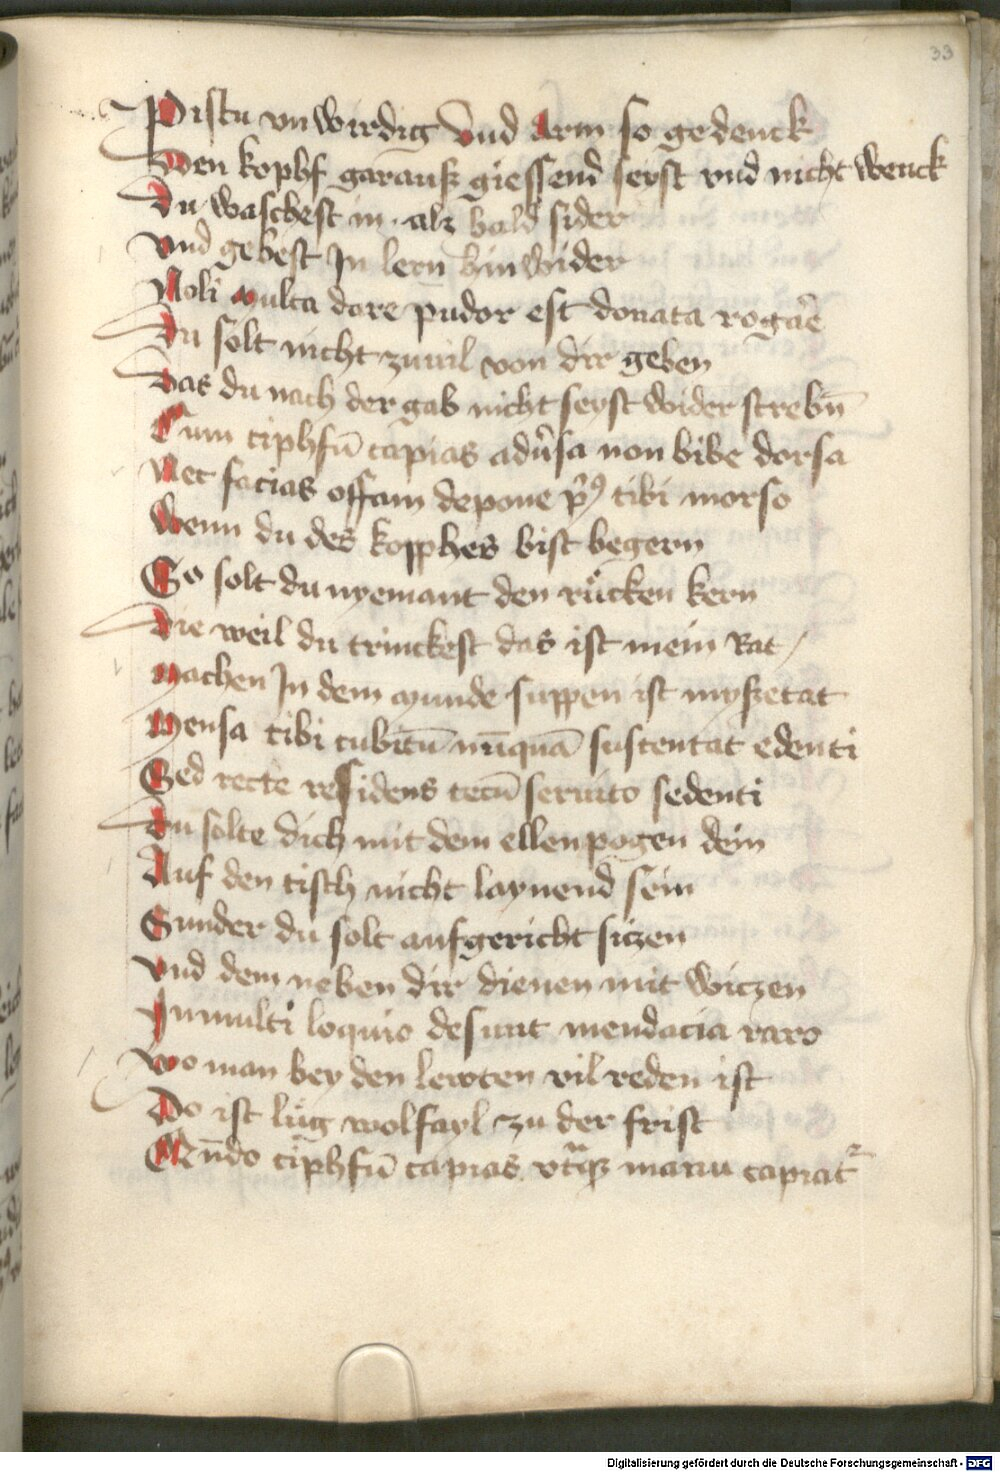 33
Pistu vnwirdig vnd Arm so gedenck
Den kophf garauß giessend seyst vnd nicht wenck
Du waschest in als bald sider
vnd gebest Jn lern hin wider
Noli multa dare pudor est donata rogar̄e
Du solt nicht zuuil von dir geben
Das du nach der gab nicht seyst wider strebn̄
Cum ciphsū capias adu̓sa non bibe dorsa
Nec facias offam depone pꝰ tibi morso
Wenn du des kopphes bist begern
So solt du nyemant den rücken kern
Die weil du trinckest das ist mein Rat /
Machen Jn dem munde suppen ist myssetat
Mensa tibi cubitū nūquā sustentat edenti
Sed recte residens tecū seruito sedenti
Du solte dich mit dem ellenpogen dein
Auf den tisch nicht laynend sein
Sunder du solt aufgericht siczen
vnd dem neben dir dienen mit wiczen
Jn multi loquio desunt mendacia raro
wo man bey den lewten vil reden ist
Do ist lüg wolfayl zu der frist
Qn̄do ciphsū capias vtraqꝫ manu capiat᷑
Digitalisierung gefördert durch die Deutsche Forschungsgemeinschaft - DFG